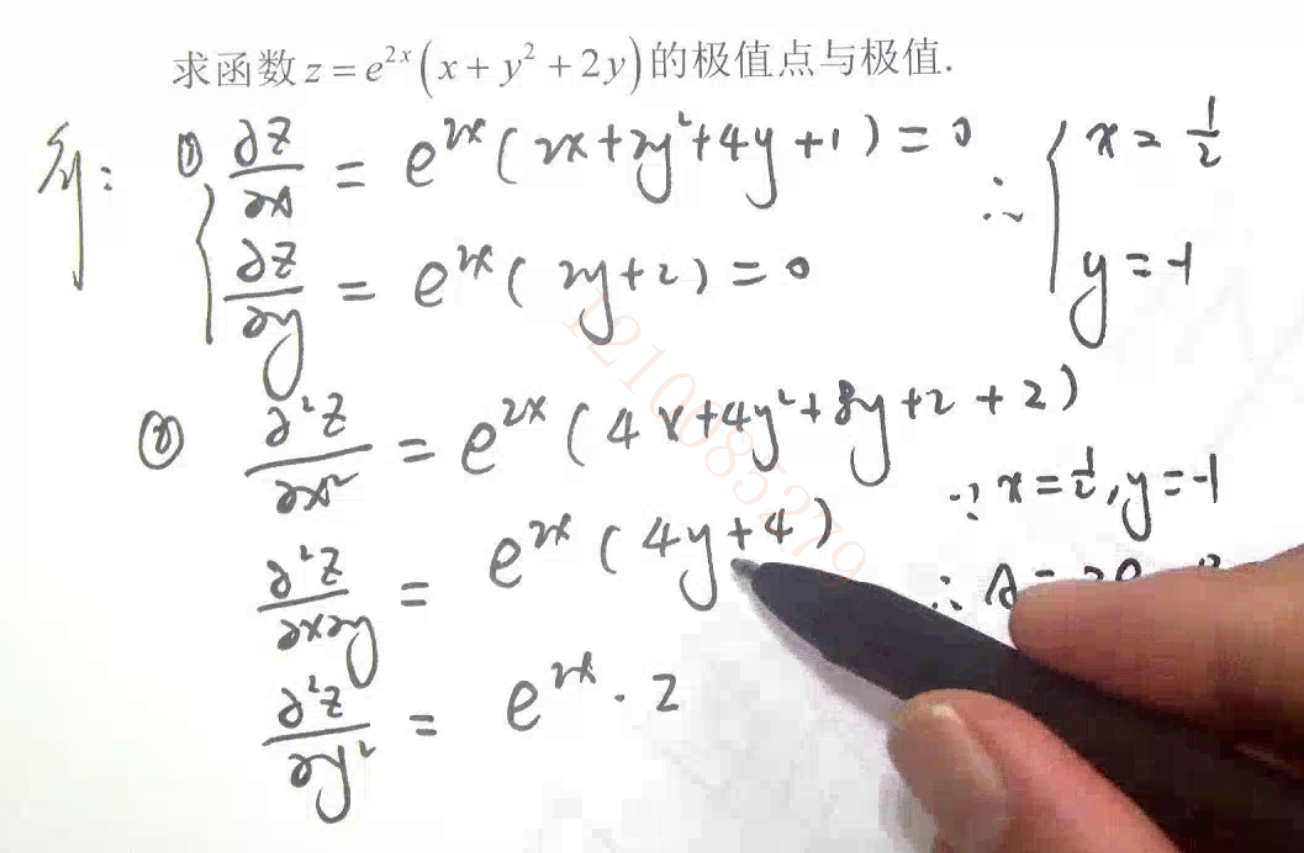 求函数 z = e^{2x}(x + y² + 2y) 的极值点与极值.
解: ① ∂z/∂x = e^{2x}(2x+2y²+4y+1) = 0
∂z/∂y = e^{2x}(2y+2) = 0
∴ { x = 1/2
y = -1
② ∂²z/∂x² = e^{2x}(4x+4y²+8y+2+2)
∵ x = 1/2, y = -1
∂²z/∂x∂y = e^{2x}(4y+4)
∴ A = 2e
∂²z/∂y² = e^{2x}·2
1210085279